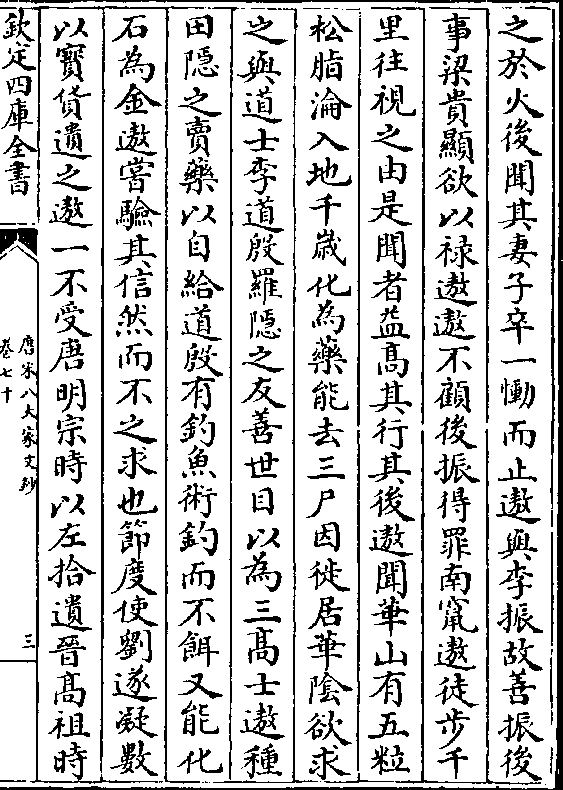 之於火後聞其妻子卒一慟而止遨與李振故善振後
事梁貴顯欲以祿遨遨不顧後振得罪南竄遨徒步千
里往視之由是聞者益髙其行其後遨聞華山有五粒
松脂淪入地千歳化為藥能去三尸因徙居華陰欲求
之與道士李道殷羅隱之友善世目以為三髙士遨種
田隱之賣藥以自給道殷有釣魚術釣而不餌又能化
石為金遨嘗驗其信然而不之求也節度使劉遂凝數
以寳貨遺之遨一不受唐明宗時以左拾遺晉髙祖時
欽定四庫全書
唐宋八大家文鈔
卷七十
三